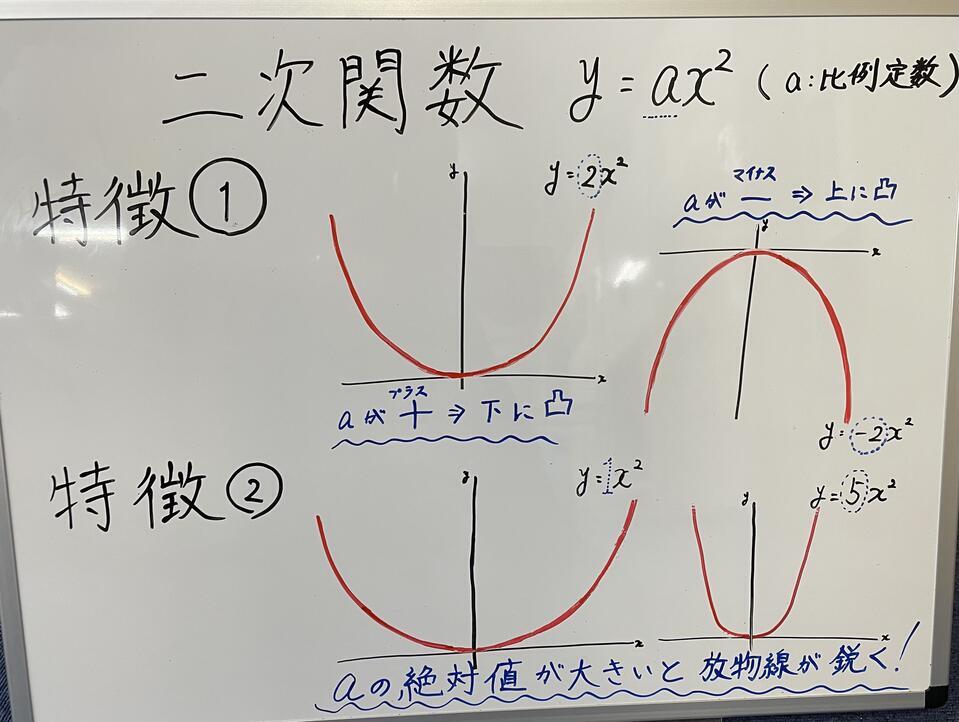 二次関数 y=ax² (a:比例定数)
特徴①
y
y=2x²
x
プラス
aが + ⇒ 下に凸
マイナス
aが − ⇒ 上に凸
y
x
y=-2x²
特徴②
y
y=1x²
x
y
y=5x²
x
aの絶対値が大きいと放物線が鋭く!